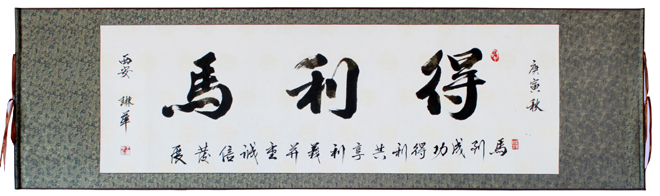 庚寅秋
得利馬
馬到成功得利共享利義并重誠信發展
西安 華